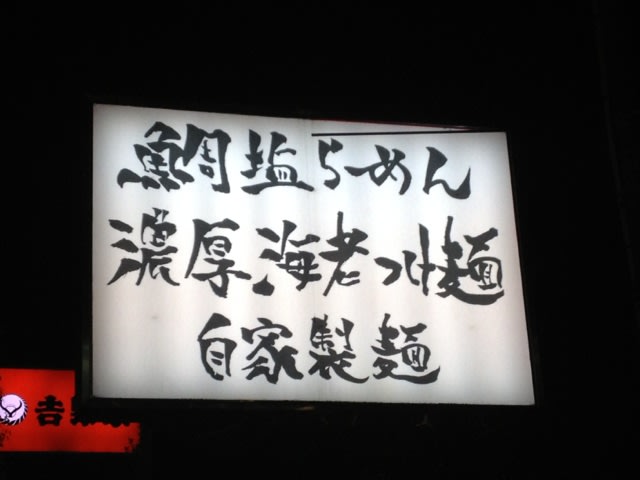 鯛塩らーめん
濃厚海老つけ麺
自家製麺
吉